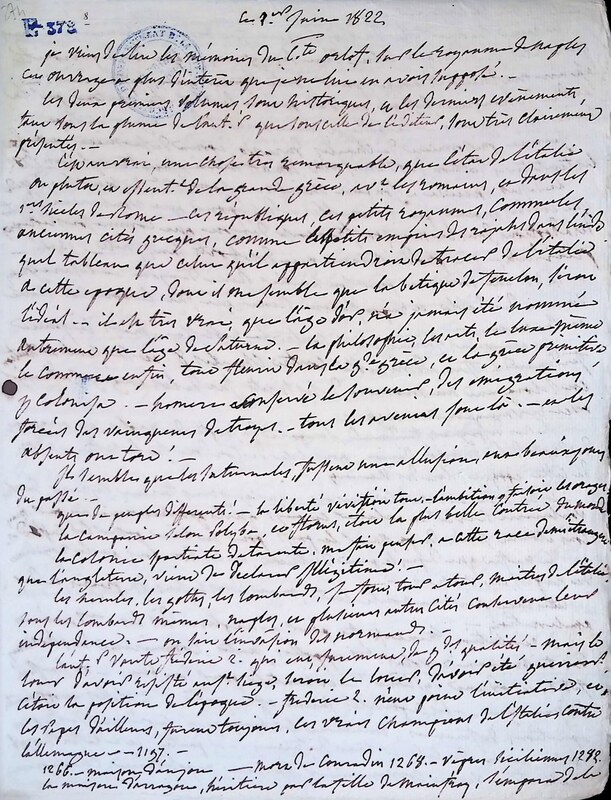 ce 1er juin 1822
je viens de lire les mémoires du Cte orlof, sur le royaume de naples
cet ouvrage a plus d'intérêt que je ne lui en avois supposé. -
les deux premiers volumes sont historiques, et les derniers evènements,
tant sous la plume de l'aut. que sous celle de l'éditeur, sont très clairement
présentés. -
c'est une chose très remarquable, que l'état de l'italie
ou plutôt de la grande grèce, avt les romains, et dans les
1ers siècles de Rome - ces républiques, ces petits royaumes, commu
anciennes cités grecques, comme
quel tableau que celui qu'il appartiendroit de tracer de l'italie
a cette epoque, dont il me semble que la betique de fenelon, seroit
l'idéal. - il est très vrai, que l'âge d'or, n'a jamais été nommée
autrement que l'âge de Saturne. - la philosophie, les arts, le luxe même
le commerce enfin, tout fleurit dans la gde grèce, et la grèce primitive
y colonisa. - homere conservé le souvenir, des émigrations
forcées des vainqueurs de troye. - tous les avenirs sont là. - et les
absents ont tort! -
il semble que les saturnales, fussent une allusion, aux beaux jours
du passé. -
que de peuples différents! - la liberté vivifioit tout, - l'ambition
la campanie selon Polybe et florus, etoit la plus belle contrée du monde
la colonie spartiate de tarente, m'a fait penser, a cette race
que l'angleterre, vient de declarer illégitime! -
les herules, les gottes, les lombards, se font, tour a tour, maîtres de l'italie
sous les lombards mêmes, naples, et plusieurs autres cités conservent leur
indépendance. - on sait l'invasion des normands.
l'aut. vante frederic 2. qui eut surement, de gdes qualités - mais le
louer d'avoir résisté au st siege, seroit le louer, d'avoir été guerrier
c'étoit la position de l'epoque. - frederic 2. n'eut point l'initiative, et
les Papes d'ailleurs, furent toujours, les vrais champions de l'Italie contre
l'allemagne - - 1197. -
1266. - maison d'anjou - mort de Conradin 1268. - vepres Siciliennes 1282.
la maison d'arragon, héritière par la fille de Mainfroy, s'empara de la